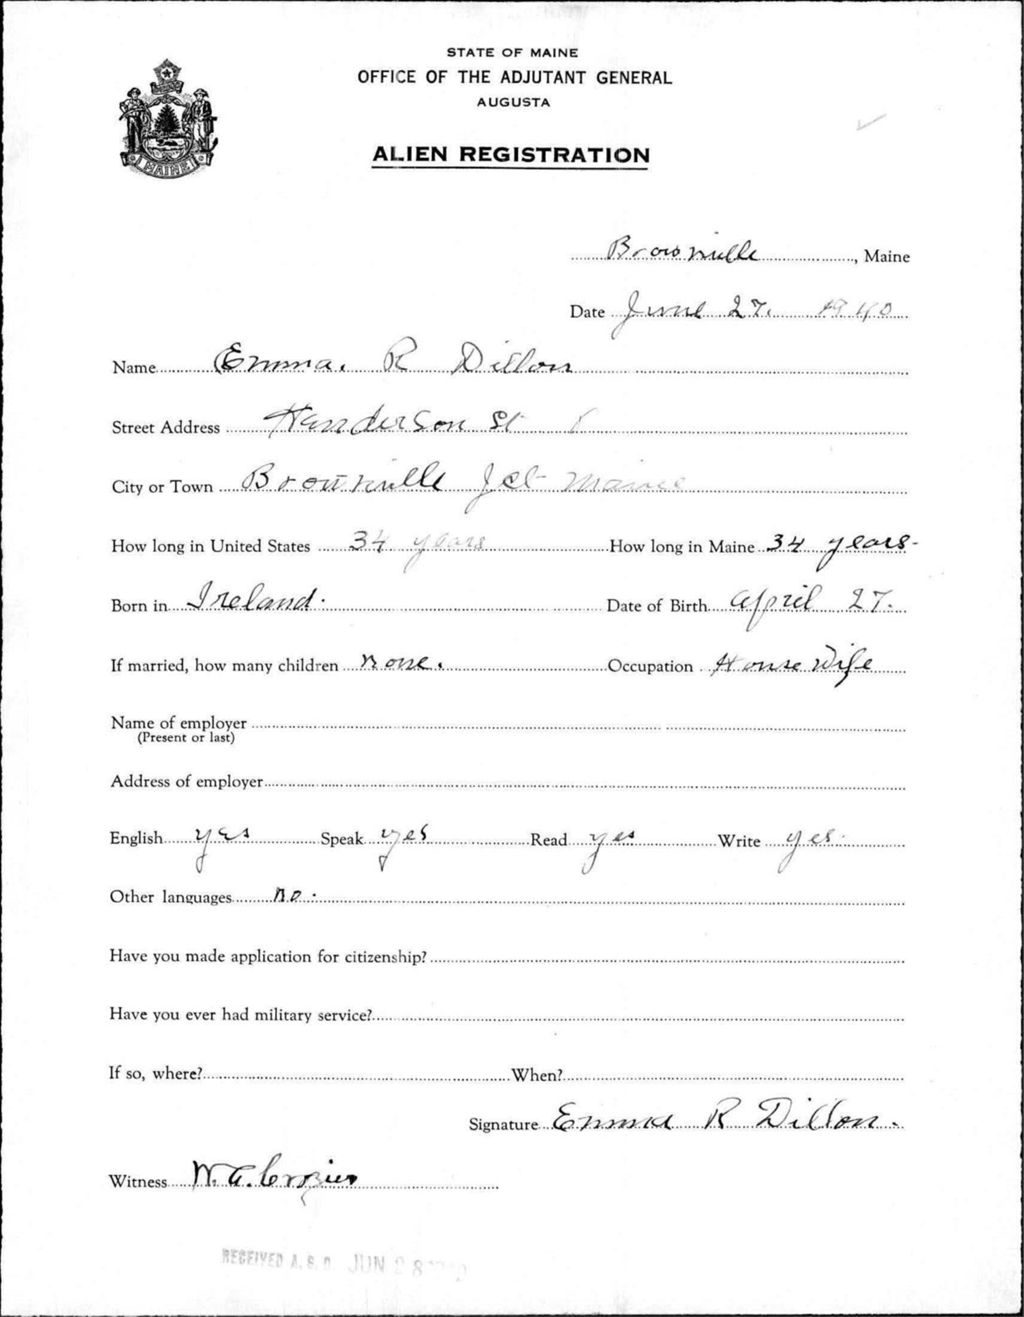 STATE OF MAINE
OFFICE OF THE ADJUTANT GENERAL
AUGUSTA
ALIEN REGISTRATION
MAINE
Brownville, Maine
Date June 27. 1940
Name Emma. R Dillon
Street Address Handerson St
City or Town Brownville Jct Maine
How long in United States 34 years How long in Maine 34 years
Born in Ireland. Date of Birth April 27.
If married, how many children none. Occupation House Wife
Name of employer
(Present or last)
Address of employer
English yes Speak yes Read yes Write yes
Other languages no.
Have you made application for citizenship?
Have you ever had military service?
If so, where? When?
Signature Emma R Dillon.
Witness W. A. Crozier
RECEIVED A. G. O. JUN 28 1940